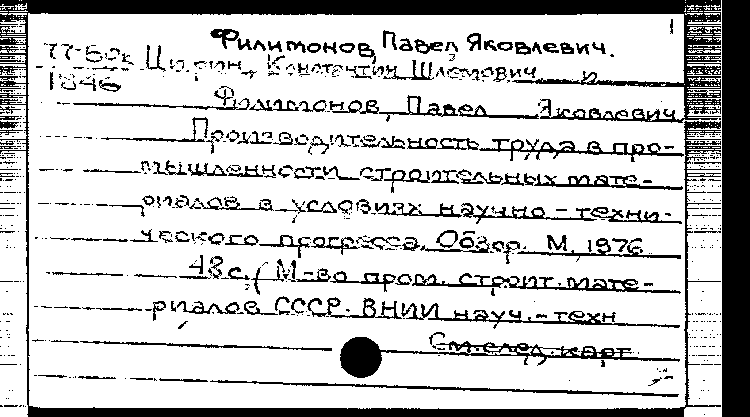 1
Филимонов, Павел Яковлевич.
77-5ок Цирин, Константин Шлемович и
1846
Филимонов, Павел Яковлевич
Производительность труда в про-
мышленности строительных мате-
риалов в условиях научно-техни-
ческого прогресса. Обзор. М., 1976
48 с. (М-во пром. строит. мате-
риалов СССР. ВНИИ науч.-техн
См. след. карт